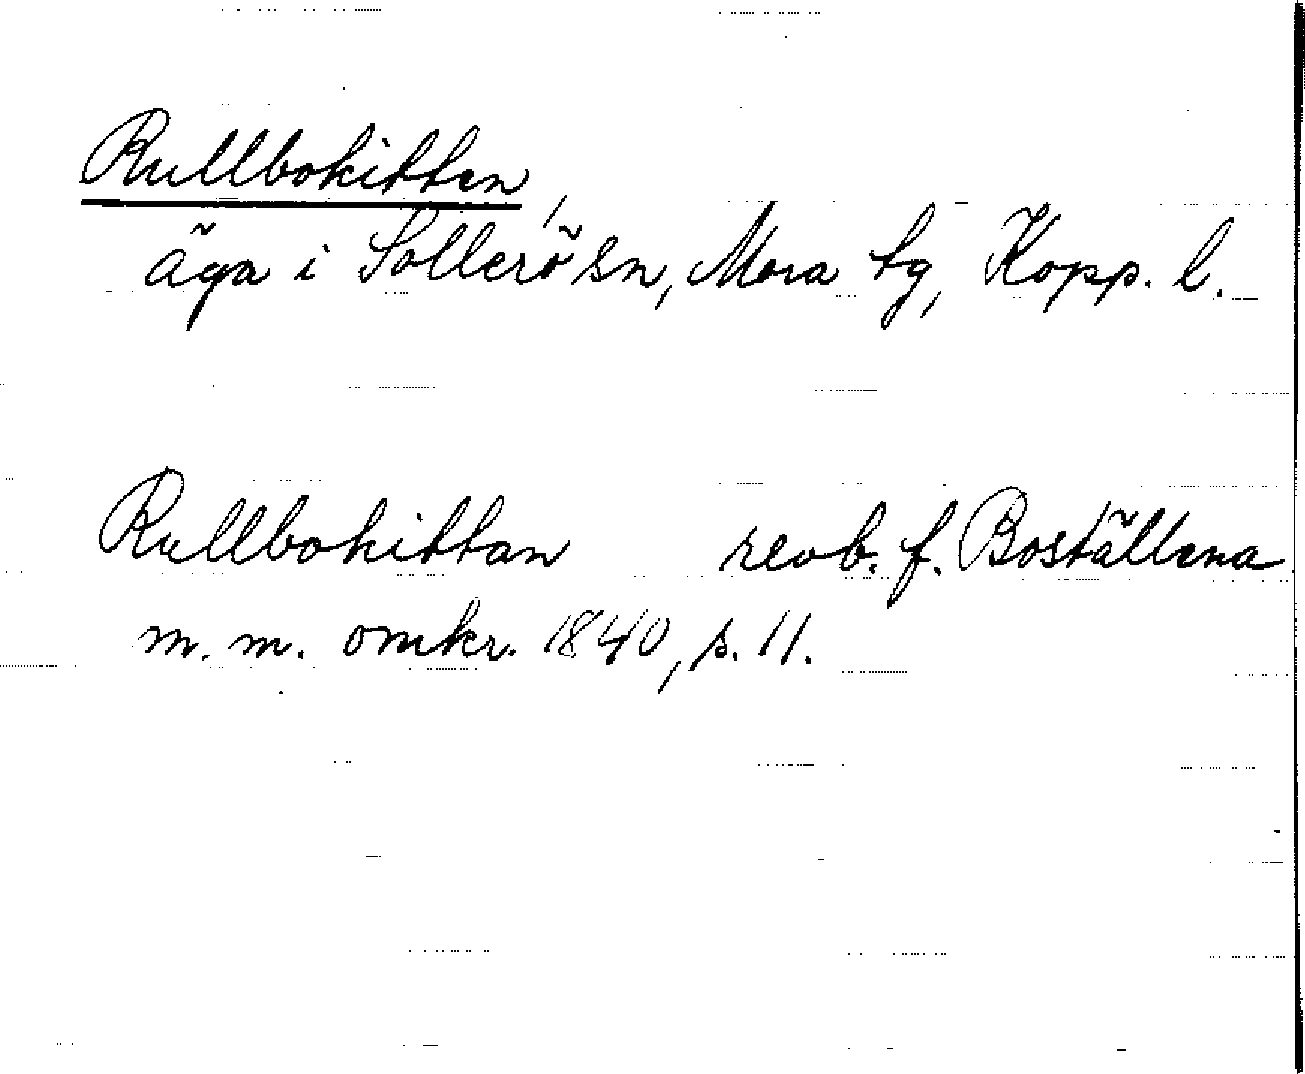 Rullbokittan,
äga i Sollerö sn, Mora tg, Kopp. l.
Rullbokittan revb. f. Boställena
m. m. omkr. 1840, s. 11.